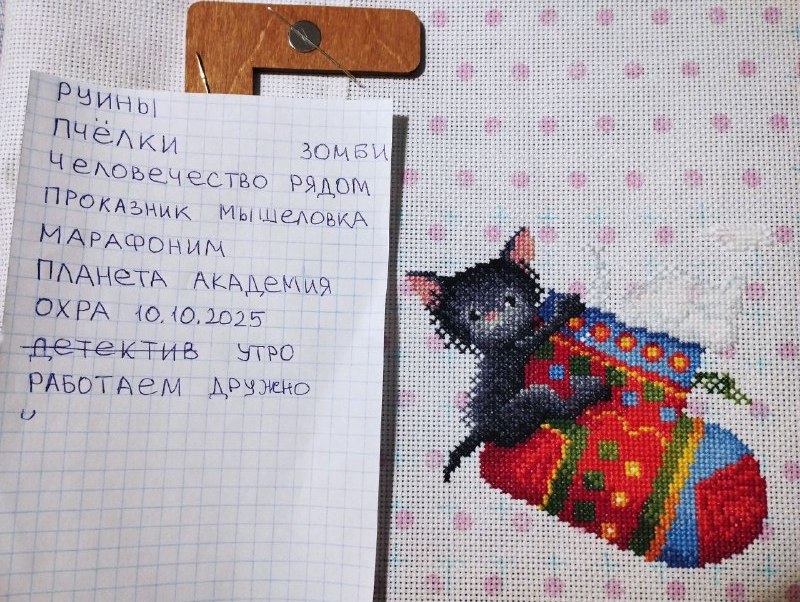 РУИНЫ
ПЧЁЛКИ ЗОМБИ
ЧЕЛОВЕЧЕСТВО РЯДОМ
ПРОКАЗНИК МЫШЕЛОВКА
МАРАФОНИМ
ПЛАНЕТА АКАДЕМИЯ
ОХРА 10.10.2025
ДЕТЕКТИВ УТРО
РАБОТАЕМ ДРУЖНО